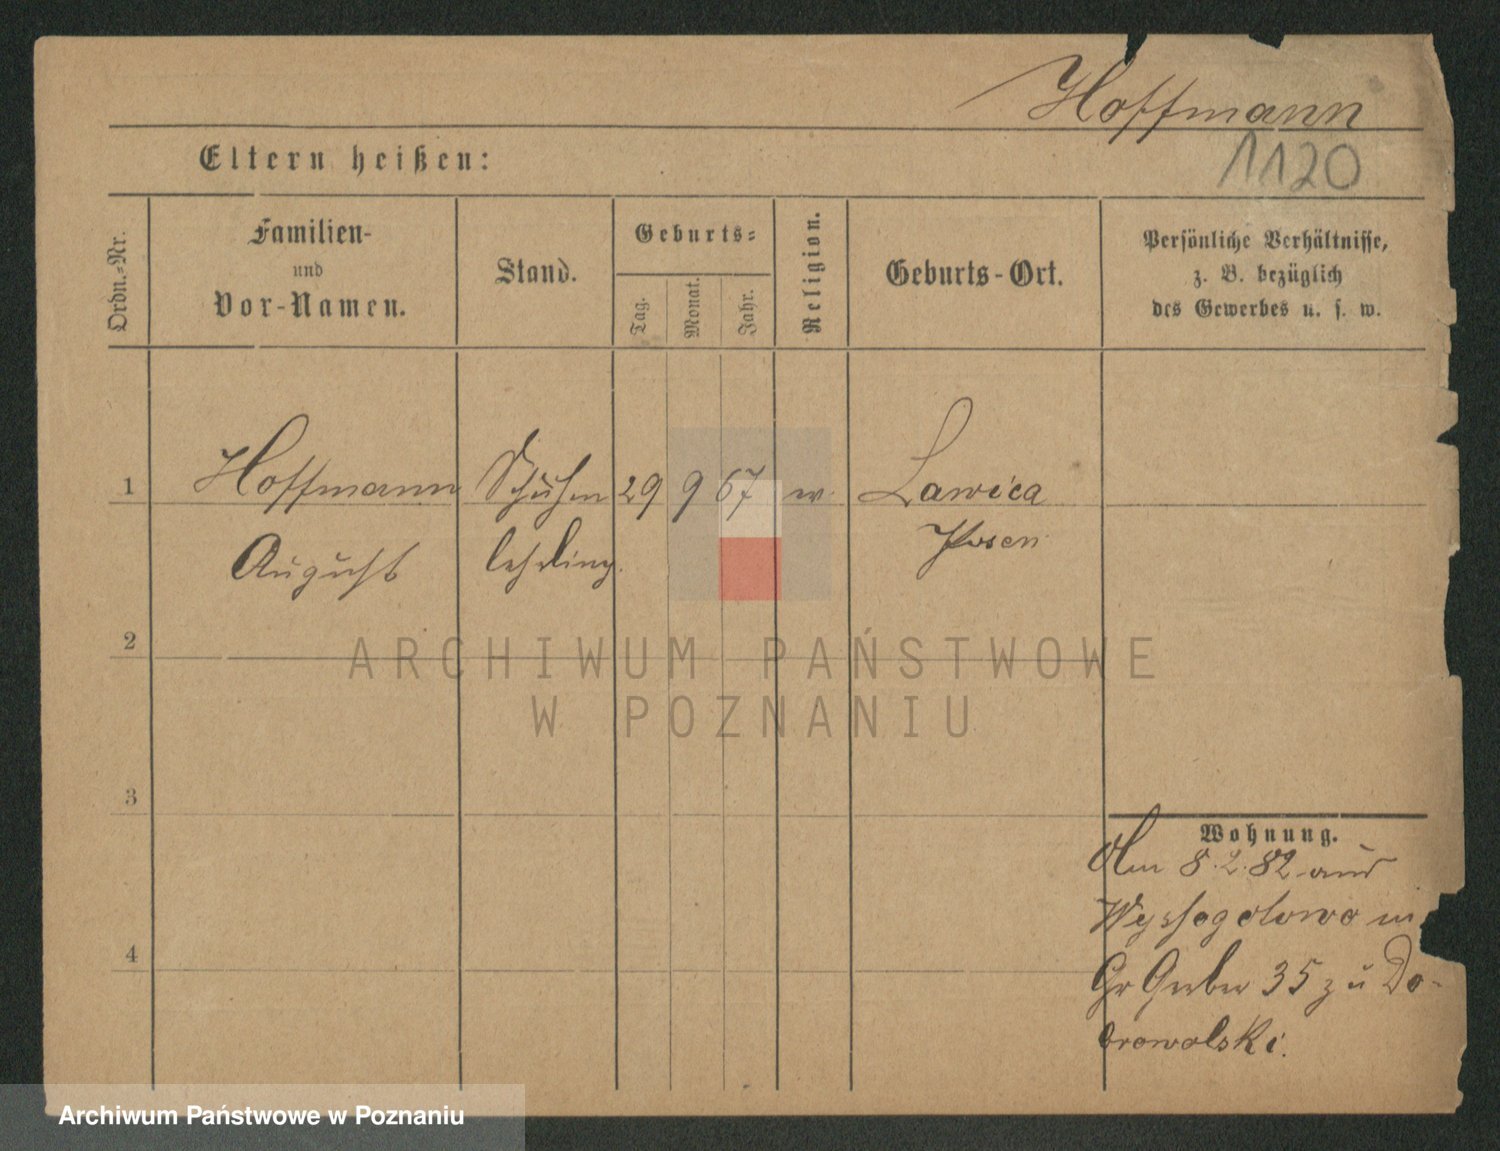 Hoffmann
1120
Eltern heißen:
Ordn.-Nr.
Familien-
und
Vor-Namen.
Stand.
Geburts-
Tag.
Monat.
Jahr.
Religion.
Geburts-Ort.
Persönliche Verhältnisse,
z. B. bezüglich
des Gewerbes u. s. w.
1 Hoffmann Schuhm 29 9 67 ev. Lawica
August lehrling. Posen
2
ARCHIWUM PAŃSTWOWE
W POZNANIU
3
Wohnung.
8. 2. 82 aus
Wyssogotowo in
4
Gr Gerber 35 zu Do-
browolski.
Archiwum Państwowe w Poznaniu